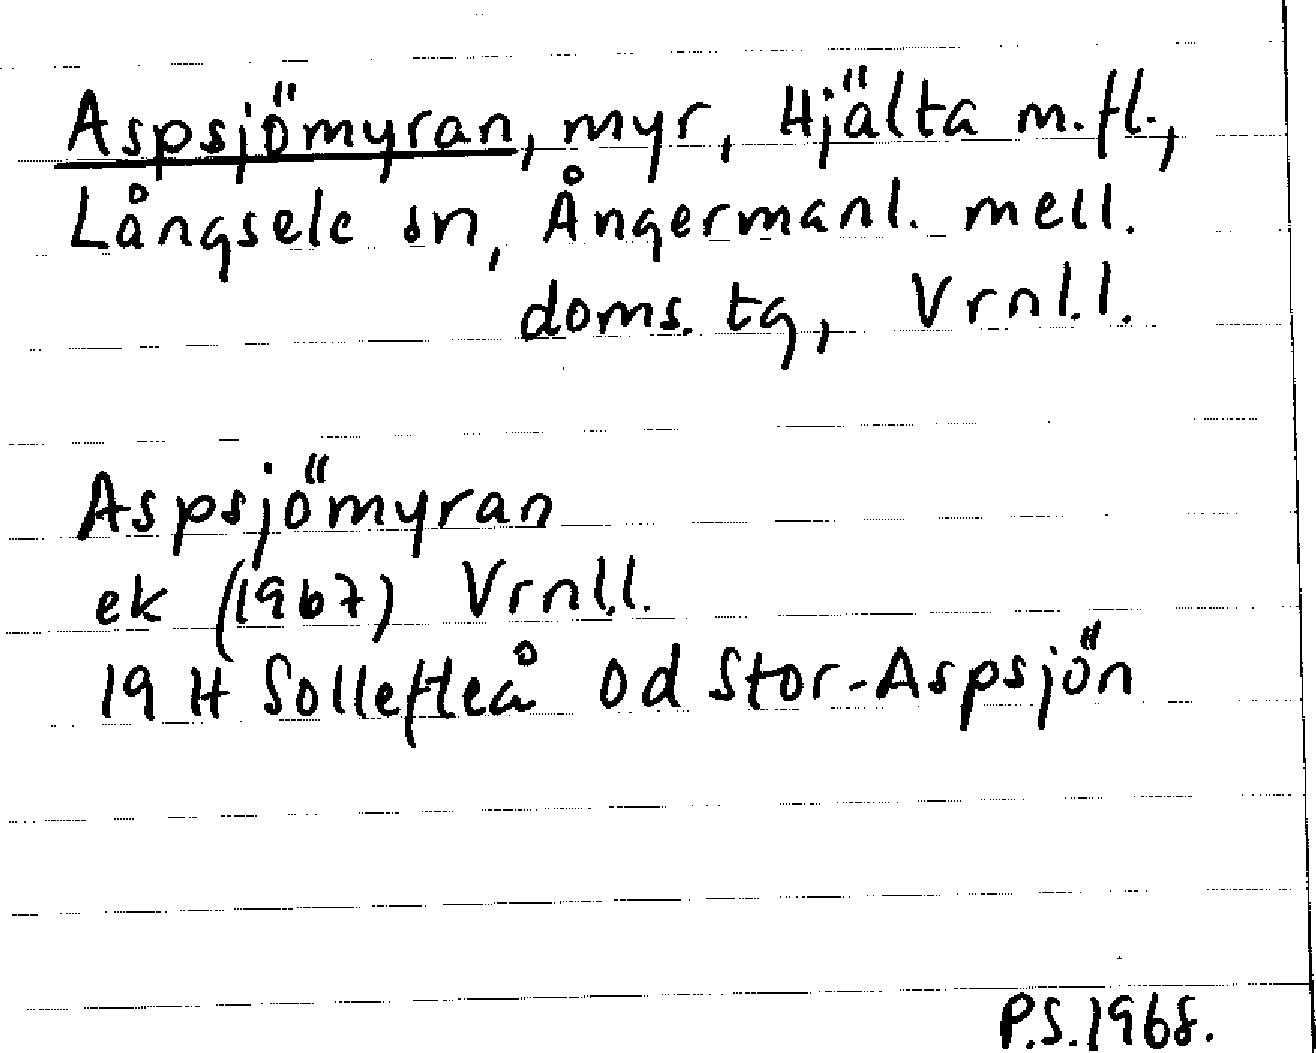 Aspsjömyran, myr, Hjälta m.fl.,
Långsele sn, Ångermanl. mell.
doms. tg, Vrnl.l.
Aspsjömyran
ek (1967) Vrnl.l.
19 H Sollefteå Od Stor-Aspsjön
P.S. 1968.